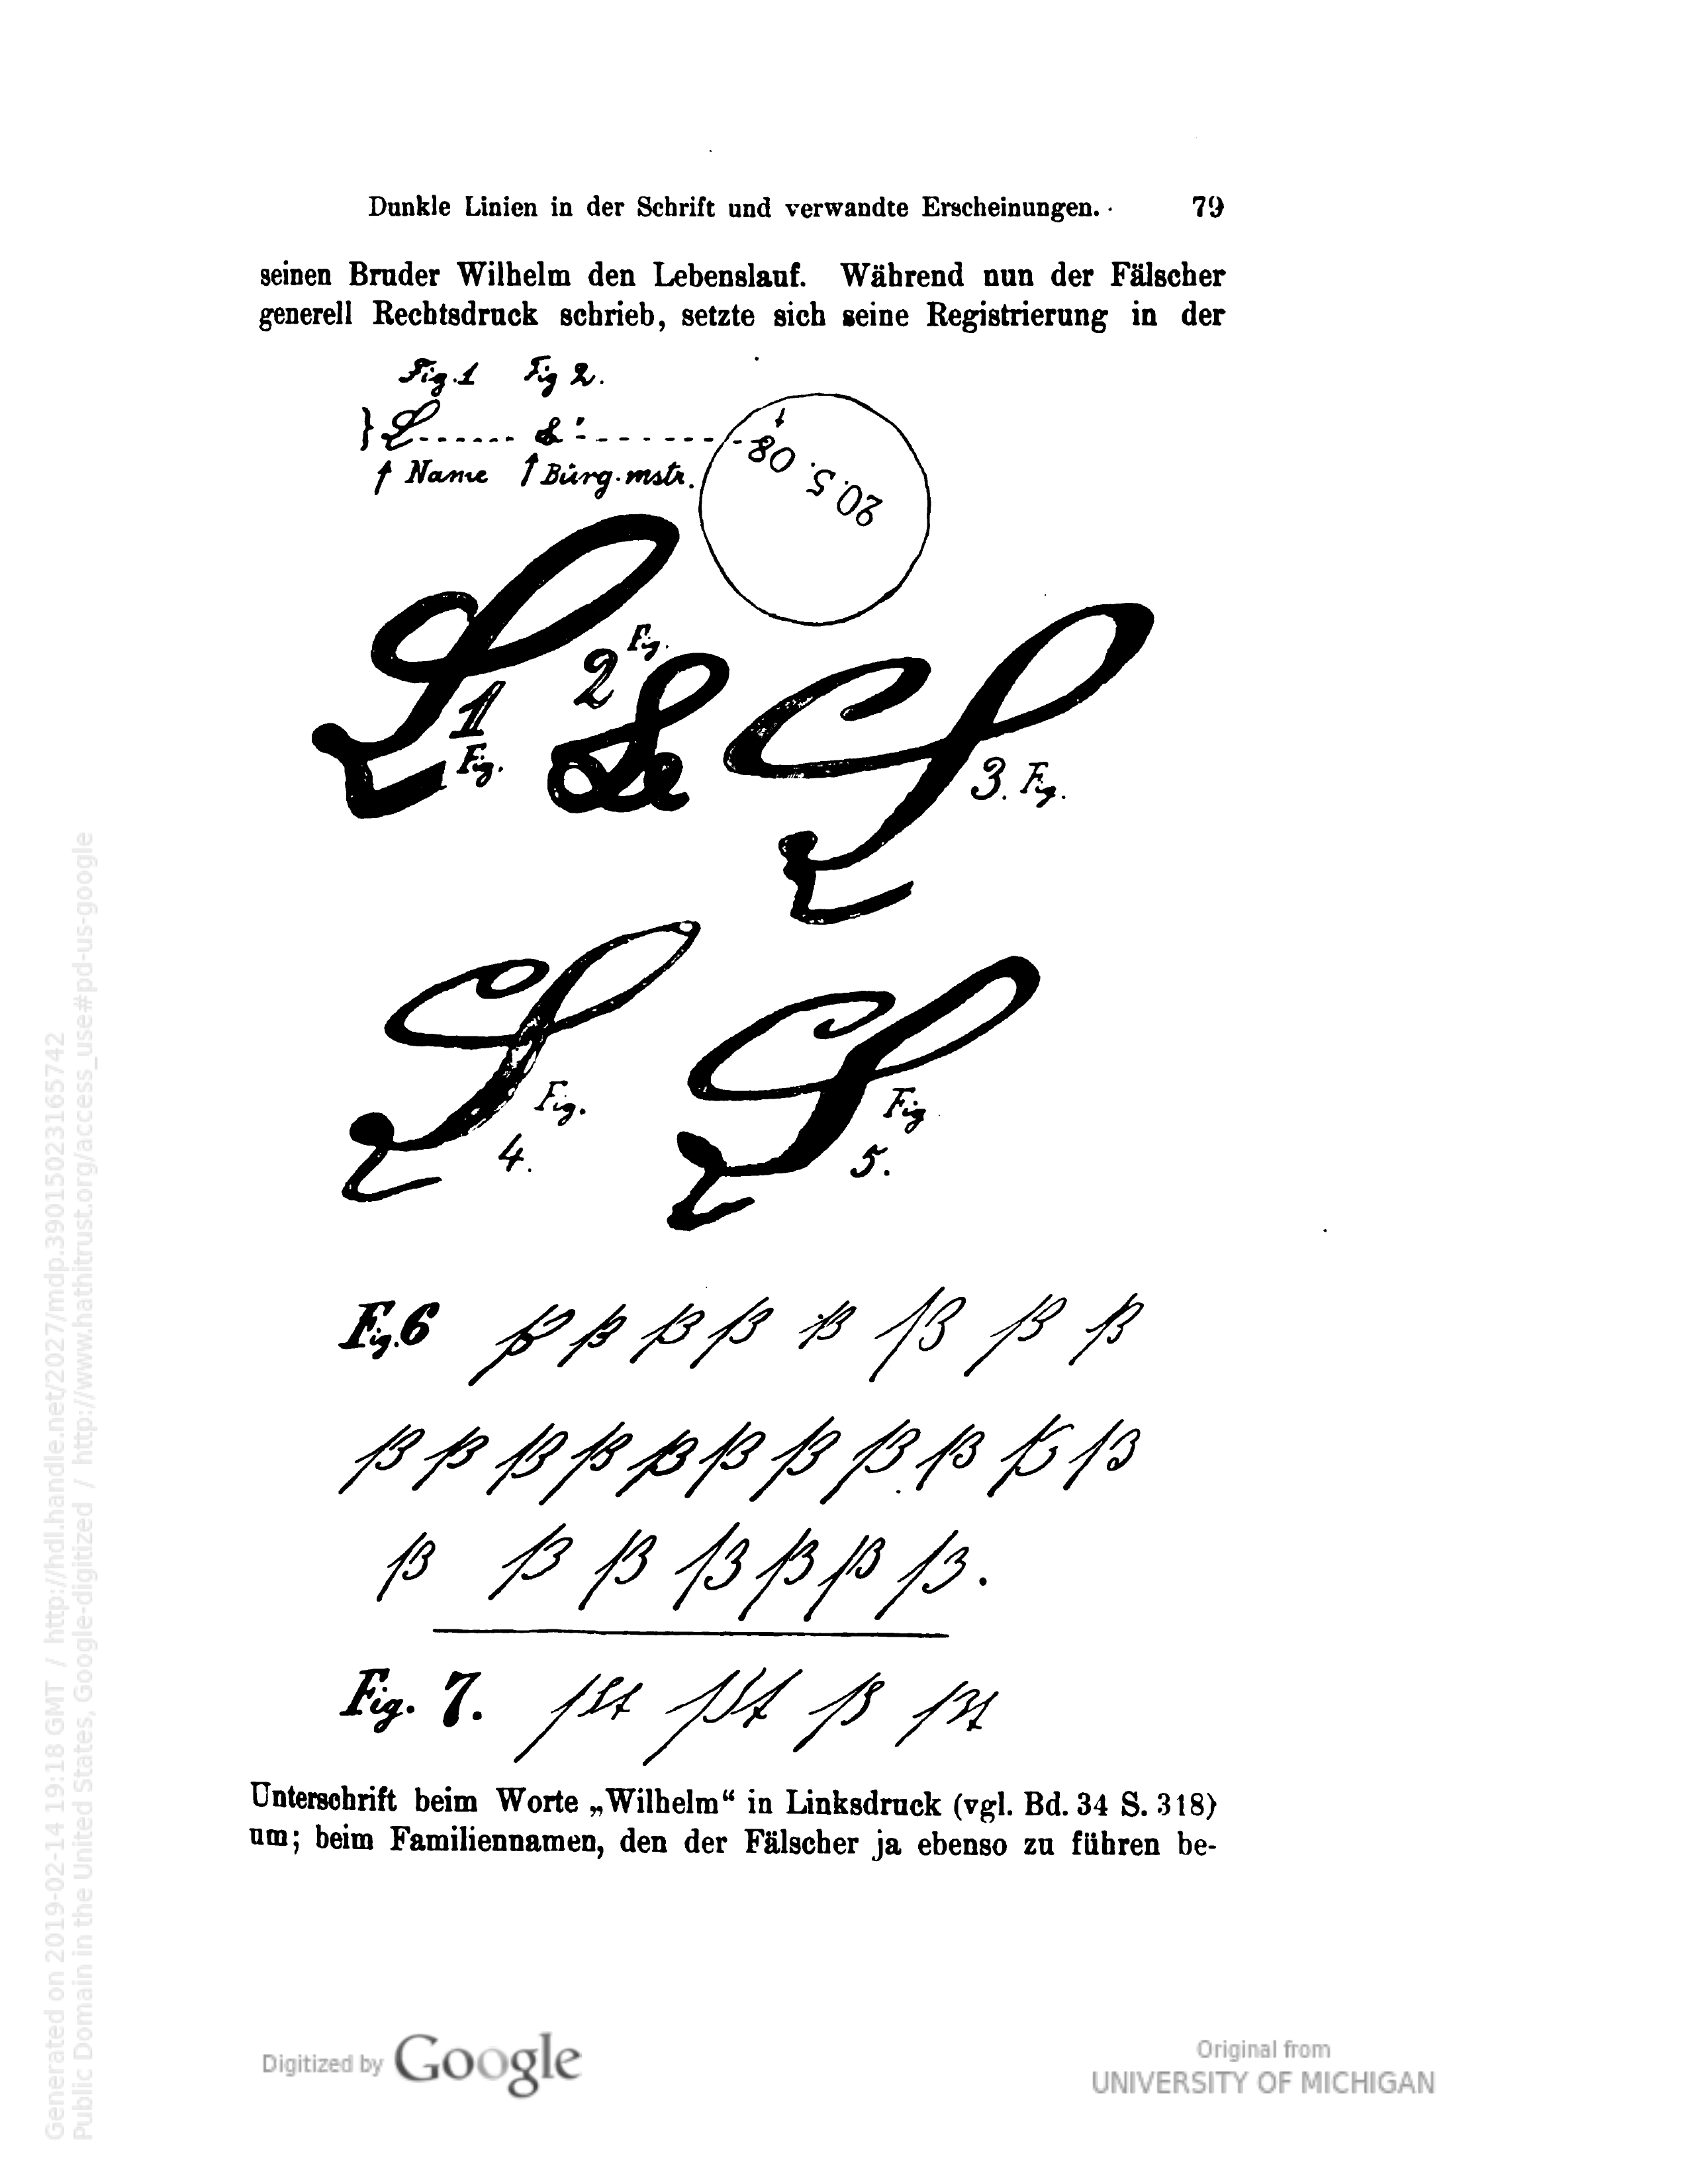 Dunkle Linien in der Schrift und verwandte Erscheinungen. 79
seinen Bruder Wilhelm den Lebenslauf. Während nun der Fälscher
generell Rechtsdruck schrieb, setzte sich seine Registrierung in der
Fig. 1 Fig 2.
} L ...... L: ........
↑ Name ↑ Bürg. mstr.
20. 5. 08.
1 Fig.
2 Fig.
3. Fig.
Fig. 4.
Fig 5.
Fig. 6 ß ß ß ß ß ß ß ß
ß ß ß ß ß ß ß ß ß ß ß
ß ß ß ß ß ß ß.
Fig. 7.
Unterschrift beim Worte „Wilhelm“ in Linksdruck (vgl. Bd. 34 S. 318)
um; beim Familiennamen, den der Fälscher ja ebenso zu führen be-
Generated on 2019-02-14 19:18 GMT / http://hdl.handle.net/2027/mdp.39015023165742
Public Domain in the United States, Google-digitized / http://www.hathitrust.org/access_use#pd-us-google
Digitized by Google
Original from
UNIVERSITY OF MICHIGAN